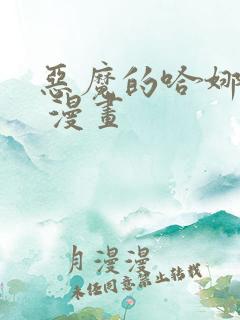 惡魔的哈娜
漫畫
月漫漫
未经同意禁止转载